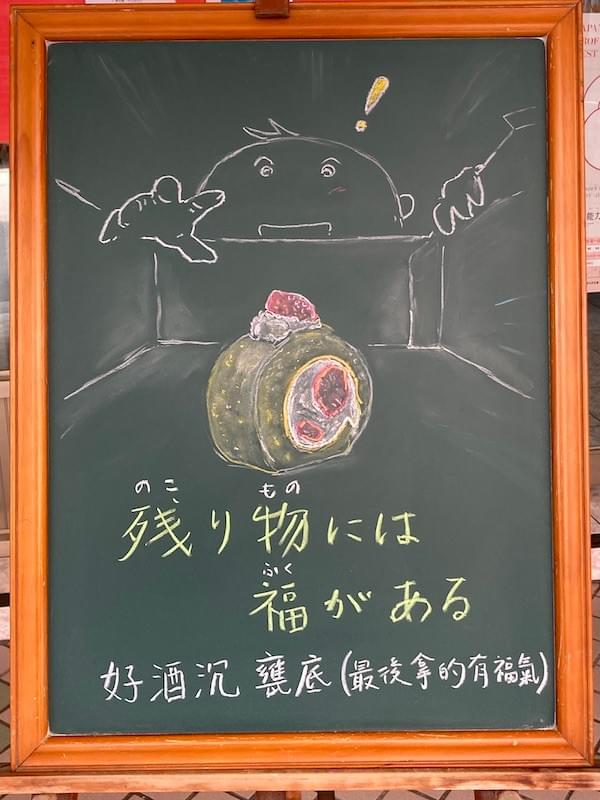 のこ もの
残り物には
ふく
福がある
好酒沉甕底(最後拿的有福氣)